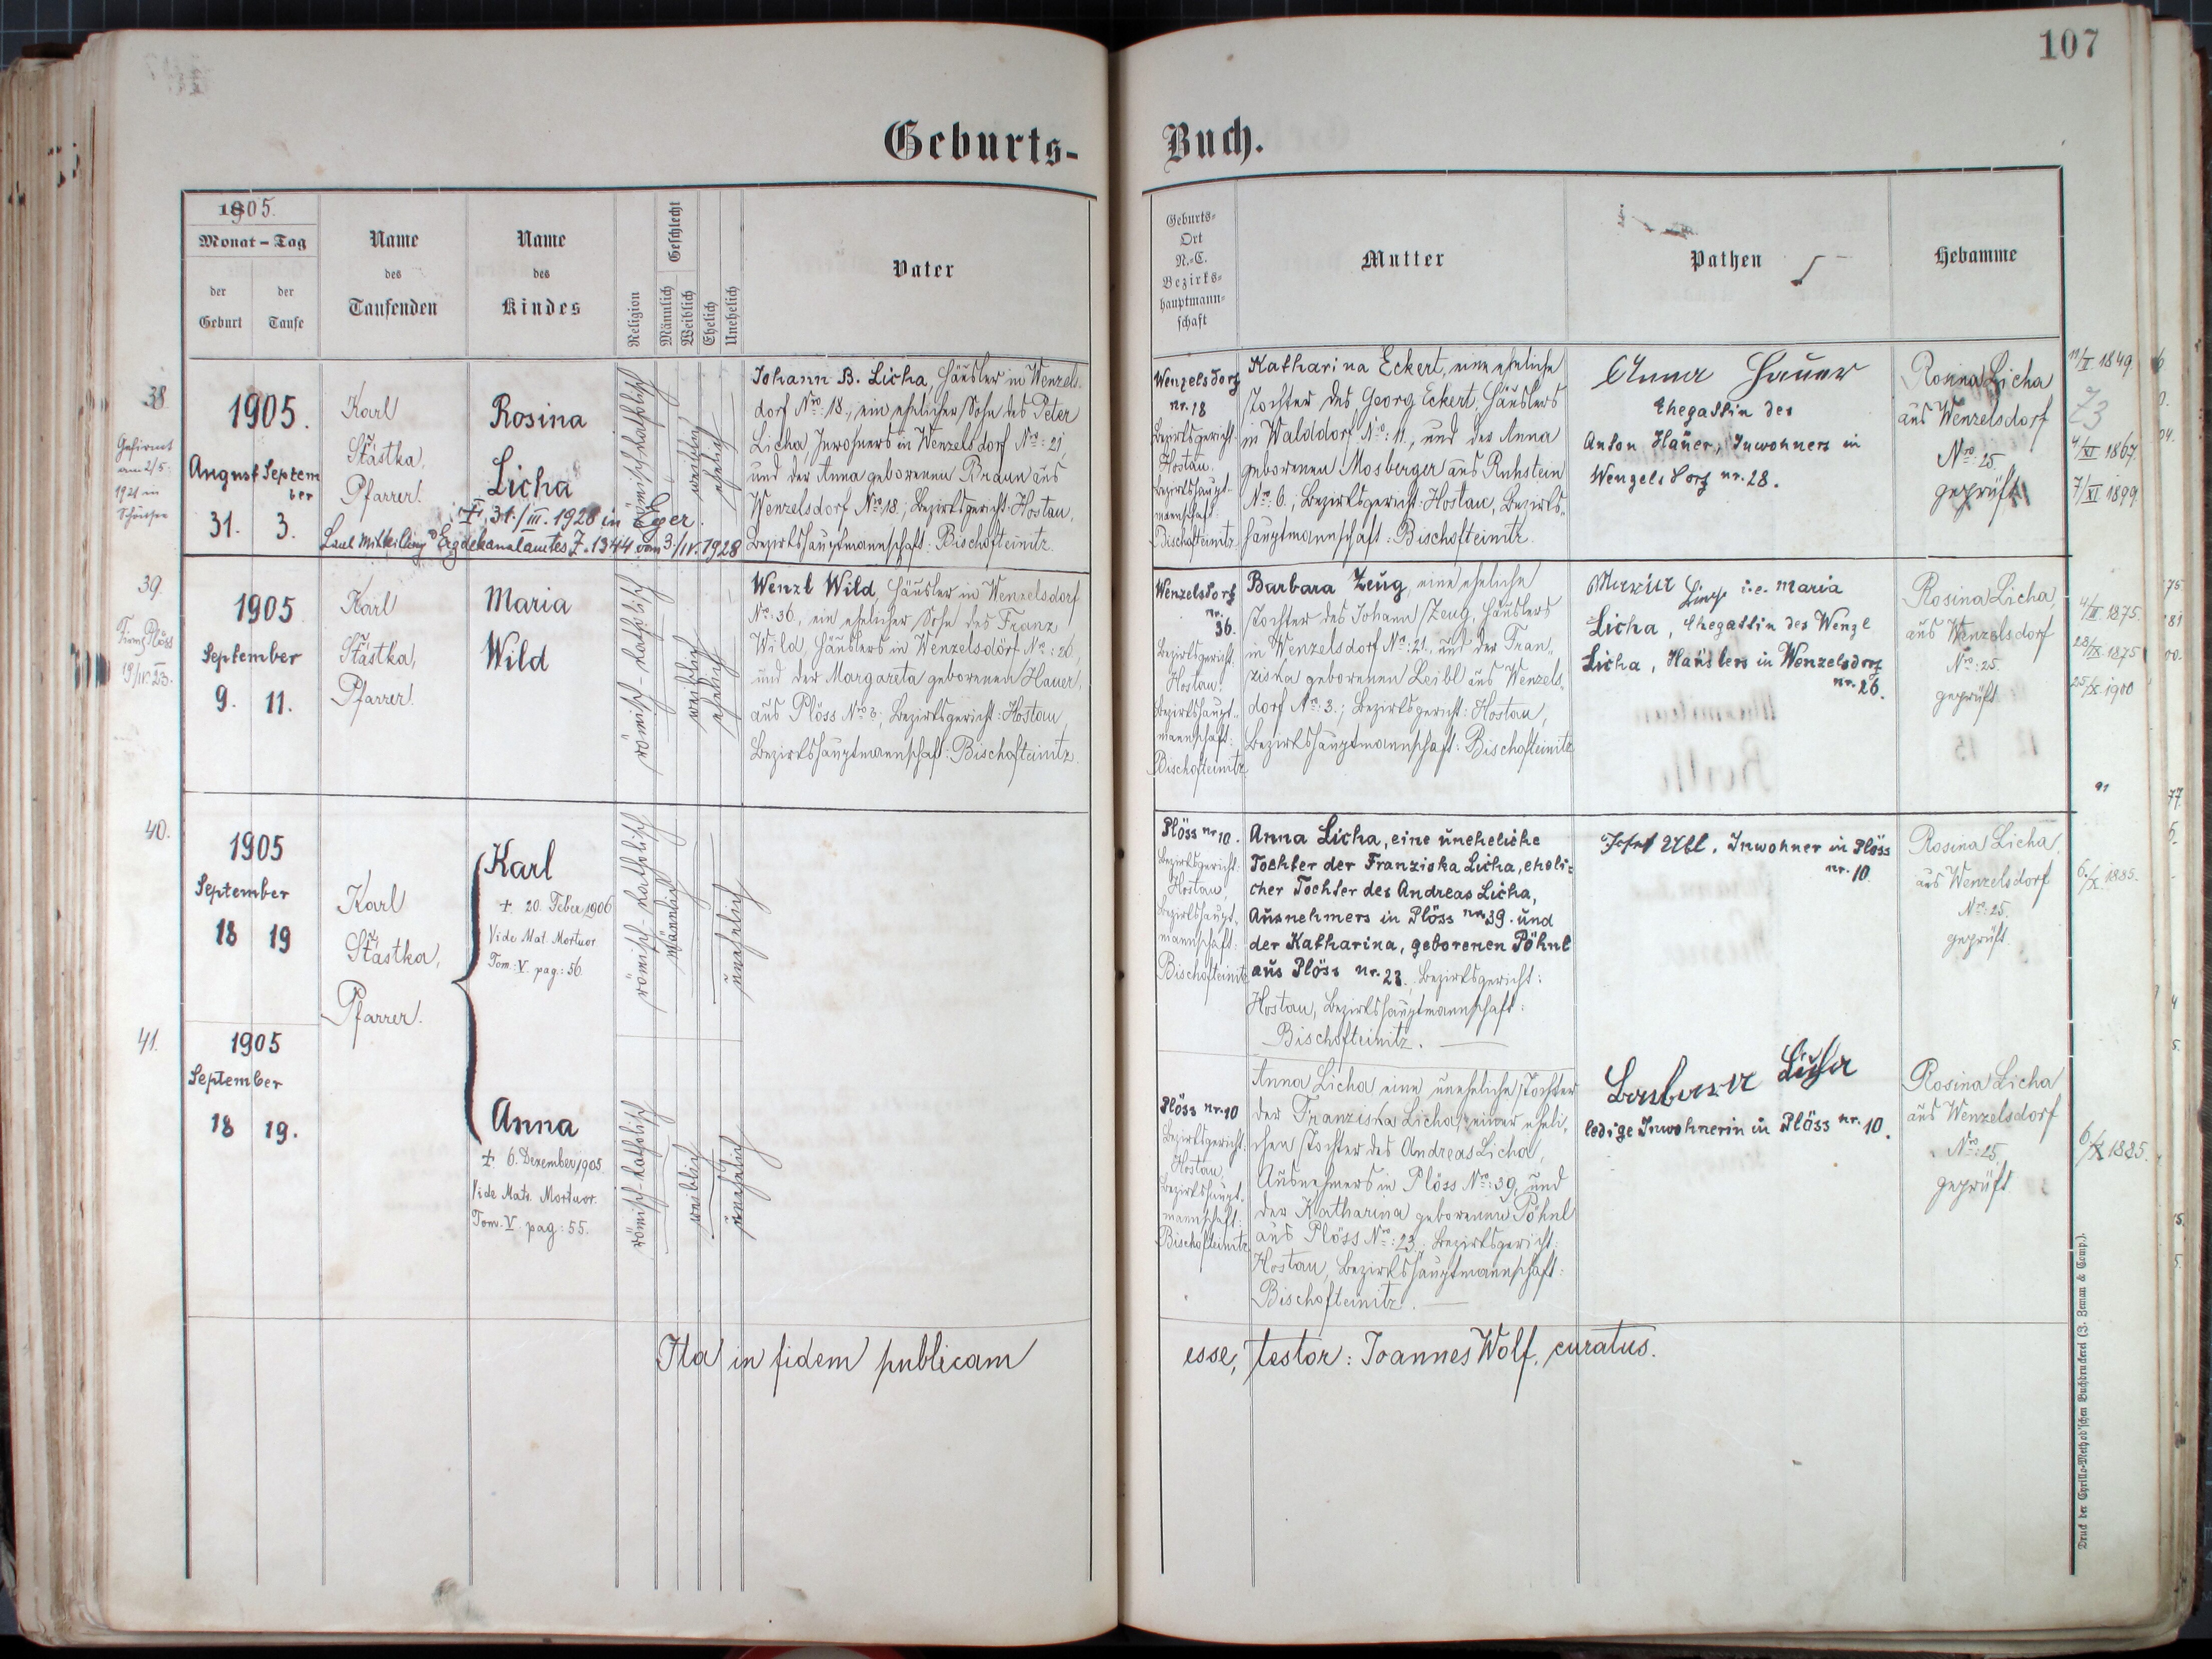 107
Geburts-
Buch.
1905.
Monat – Tag
der Geburt
der Taufe
Name des Taufenden
Name des Kindes
Religion
Geschlecht
Männlich
Weiblich
Ehelich
Unehelich
Vater
Geburts-
Ort
N.-C.
Bezirks-
hauptmann-
schaft
Mutter
Pathen
Hebamme
38.
Gefirmt
am 2/5.
1921 in
1905.
August
Septem
ber
31.
3.
Karl
Šťástka,
Pfarrer.
Rosina
Licha
†, 31./III. 1928 in Eger.
Laut Mitteilung d. Erzdekanalamtes Z. 1344 vom 3./IV. 1928
römisch-katholisch
weiblich
ehelich
Johann B. Licha, Häusler in Wenzels-
dorf Nro: 18., ein ehelicher Sohn des Peter
Licha, Inwohners in Wenzelsdorf Nro: 21,
und der Anna geborenen Braun aus
Wenzelsdorf Nro 18.; Bezirksgericht: Hostau,
Bezirkshauptmannschaft: Bischofteinitz.
Wenzelsdorf
nr. 18
Bezirksgericht:
Hostau.
Bezirkshaupt-
mannschaft:
Bischofteinitz.
Katharina Eckert, eine eheliche
Tochter des Georg Eckert, Häuslers
in Walddorf Nro: 11., und der Anna
geborenen Mosberger aus Ruhstein
Nro: 6.; Bezirksgericht: Hostau, Bezirks-
hauptmannschaft: Bischofteinitz.
Anna Hauer
Ehegattin des
Anton Hauer, Inwohners in
Wenzelsdorf nr. 28.
Rosina Licha
aus Wenzelsdorf
Nro: 25.
geprüft
11/I. 1849.
73
4/XI 1867.
7/XI 1899
39.
Firm. Plöss
19/IV. 23.
1905
September
9.
11.
Karl
Šťástka,
Pfarrer.
Maria
Wild
römisch-katholisch
weiblich
ehelich
Wenzl Wild, Häusler in Wenzelsdorf
Nro: 36., ein ehelicher Sohn des Franz
Wild, Häuslers in Wenzelsdorf Nro: 26.,
und der Margareta geborenen Hauer,
aus Plöss Nro 3; Bezirksgericht: Hostau,
Bezirkshauptmannschaft: Bischofteinitz.
Wenzelsdorf
nr.
36.
Bezirksgericht:
Hostau.
Bezirkshaupt-
mannschaft:
Bischofteinitz
Barbara Zeug, eine eheliche
Tochter des Johann Zeug, Häuslers
in Wenzelsdorf Nro: 21., und der Fran-
ziska geborenen Leibl aus Wenzels-
dorf Nro: 3.; Bezirksgericht: Hostau,
Bezirkshauptmannschaft: Bischofteinitz
Maria i.e. Maria
Licha, Ehegattin des Wenzl
Licha, Häuslers in Wenzelsdorf
nr. 26.
Rosina Licha,
aus Wenzelsdorf
Nro: 25.
geprüft
4/III. 1875.
28/IX. 1875
25/X. 1900
40.
1905
September
18
19
Karl
Šťástka,
Pfarrer.
Karl
† 20. Feber 1906
Vide Mat. Mortuor
Tom: V. pag: 56.
römisch-katholisch
männlich
unehelich
Plöss nr 10.
Bezirksgericht:
Hostau,
Bezirkshaupt-
mannschaft:
Bischofteinitz
Anna Licha, eine uneheliche
Tochter der Franziska Licha, eheli-
cher Tochter des Andreas Licha,
Ausnehmers in Plöss nr. 39. und
der Katharina, geborenen Pöhnl
aus Plöss nr. 23., Bezirksgericht:
Hostau, Bezirkshauptmannschaft:
Bischofteinitz.
Josef Uibl, Inwohner in Plöss
nr. 10.
Rosina Licha,
aus Wenzelsdorf
Nro: 25.
geprüft.
6./X. 1885.
41.
1905
September
18
19.
Anna
† 6. Dezember 1905.
Vide Matr. Mortuor.
Tom. V. pag: 55.
römisch-katholisch
weiblich
unehelich
Plöss nr. 10
Bezirksgericht:
Hostau,
Bezirkshaupt-
mannschaft:
Bischofteinitz
Anna Licha eine uneheliche Tochter
der Franziska Licha, einer eheli-
chen Tochter des Andreas Licha,
Ausnehmers in Plöss Nro: 39, und
der Katharina geborenen Pöhnl
aus Plöss Nro: 23., Bezirksgericht:
Hostau, Bezirkshauptmannschaft:
Bischofteinitz.
Barbara Licha
ledige Inwohnerin in Plöss nr. 10.
Rosina Licha
aus Wenzelsdorf
Nro: 25,
geprüft
6/X 1885.
Ita in fidem publicam
esse, testor: Joannes Wolf, curatus.
Druck der Cyrillo-Method'schen Buchdruckerei (J. Zeman & Comp.).